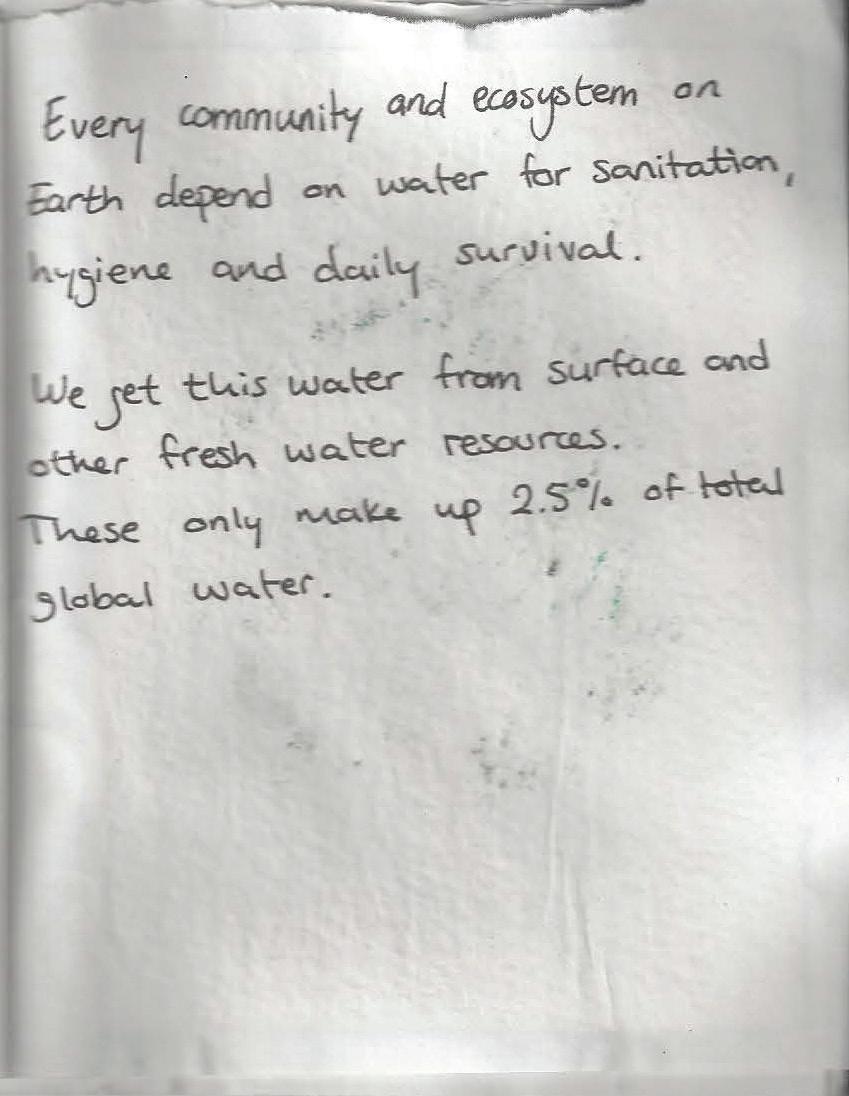 Every community and ecosystem on
Earth depend on water for sanitation,
hygiene and daily survival.
We get this water from surface and
other fresh water resources.
These only make up 2.5% of total
global water.